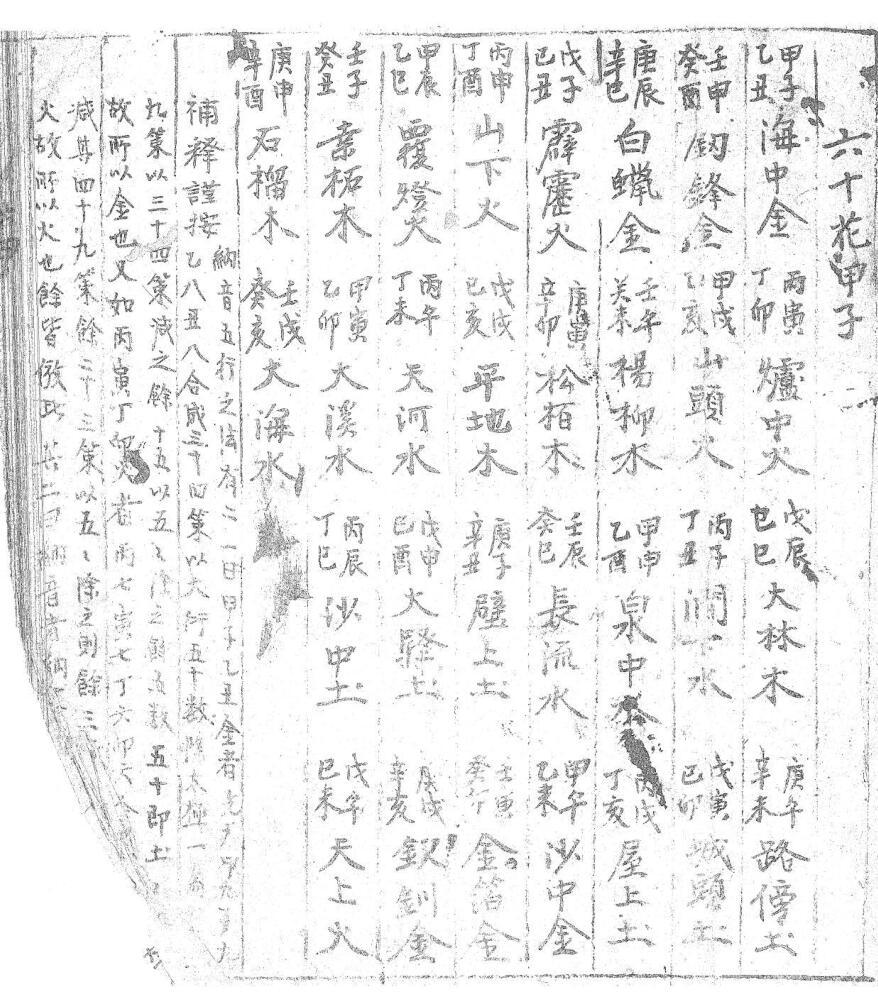 六十花甲子
甲子乙丑海中金 丙寅丁卯爐中火 戊辰己巳大林木 庚午辛未路傍土
壬申癸酉釰鋒金 甲戌乙亥山頭火 丙子丁丑澗下水 戊寅己卯城頭土
庚辰辛巳白蠟金 壬午癸未楊柳木 甲申乙酉泉中水 丙戌丁亥屋上土
戊子己丑霹靂火 庚寅辛卯松栢木 壬辰癸巳長流水 甲午乙未沙中金
丙申丁酉山下火 戊戌己亥平地木 庚子辛丑壁上土 壬寅癸卯金箔金
甲辰乙巳覆燈火 丙午丁未天河水 戊申己酉大驛土 庚戌辛亥釵釧金
壬子癸丑桒柘木 甲寅乙卯大溪水 丙辰丁巳沙中土 戊午己未天上火
庚申辛酉石榴木 壬戌癸亥大海水
補釋謹按納音五行之法有二一曰甲子乙丑金者
乙八丑八合成三十四策以大衍五十數
九策以三十四策减之餘十五以五〻除之餘 五十即土
故所以金也又如丙寅丁卯火者丙七寅七丁六卯六
减其四十九策餘二十三策以五〻除之則餘三
火故所以火也餘皆倣此其二曰